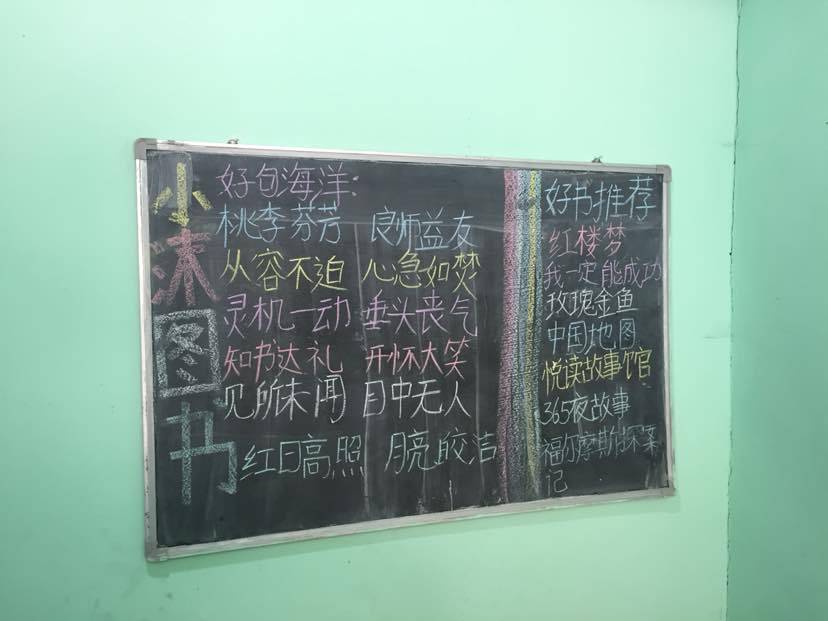 小沫图书
好句海洋:
桃李芬芳 良师益友
从容不迫 心急如焚
灵机一动 垂头丧气
知书达礼 开怀大笑
见所未闻 目中无人
红日高照 月亮皎洁
好书推荐
红楼梦
我一定能成功
玫瑰金鱼
中国地图
悦读故事馆
365夜故事
福尔摩斯探案
记